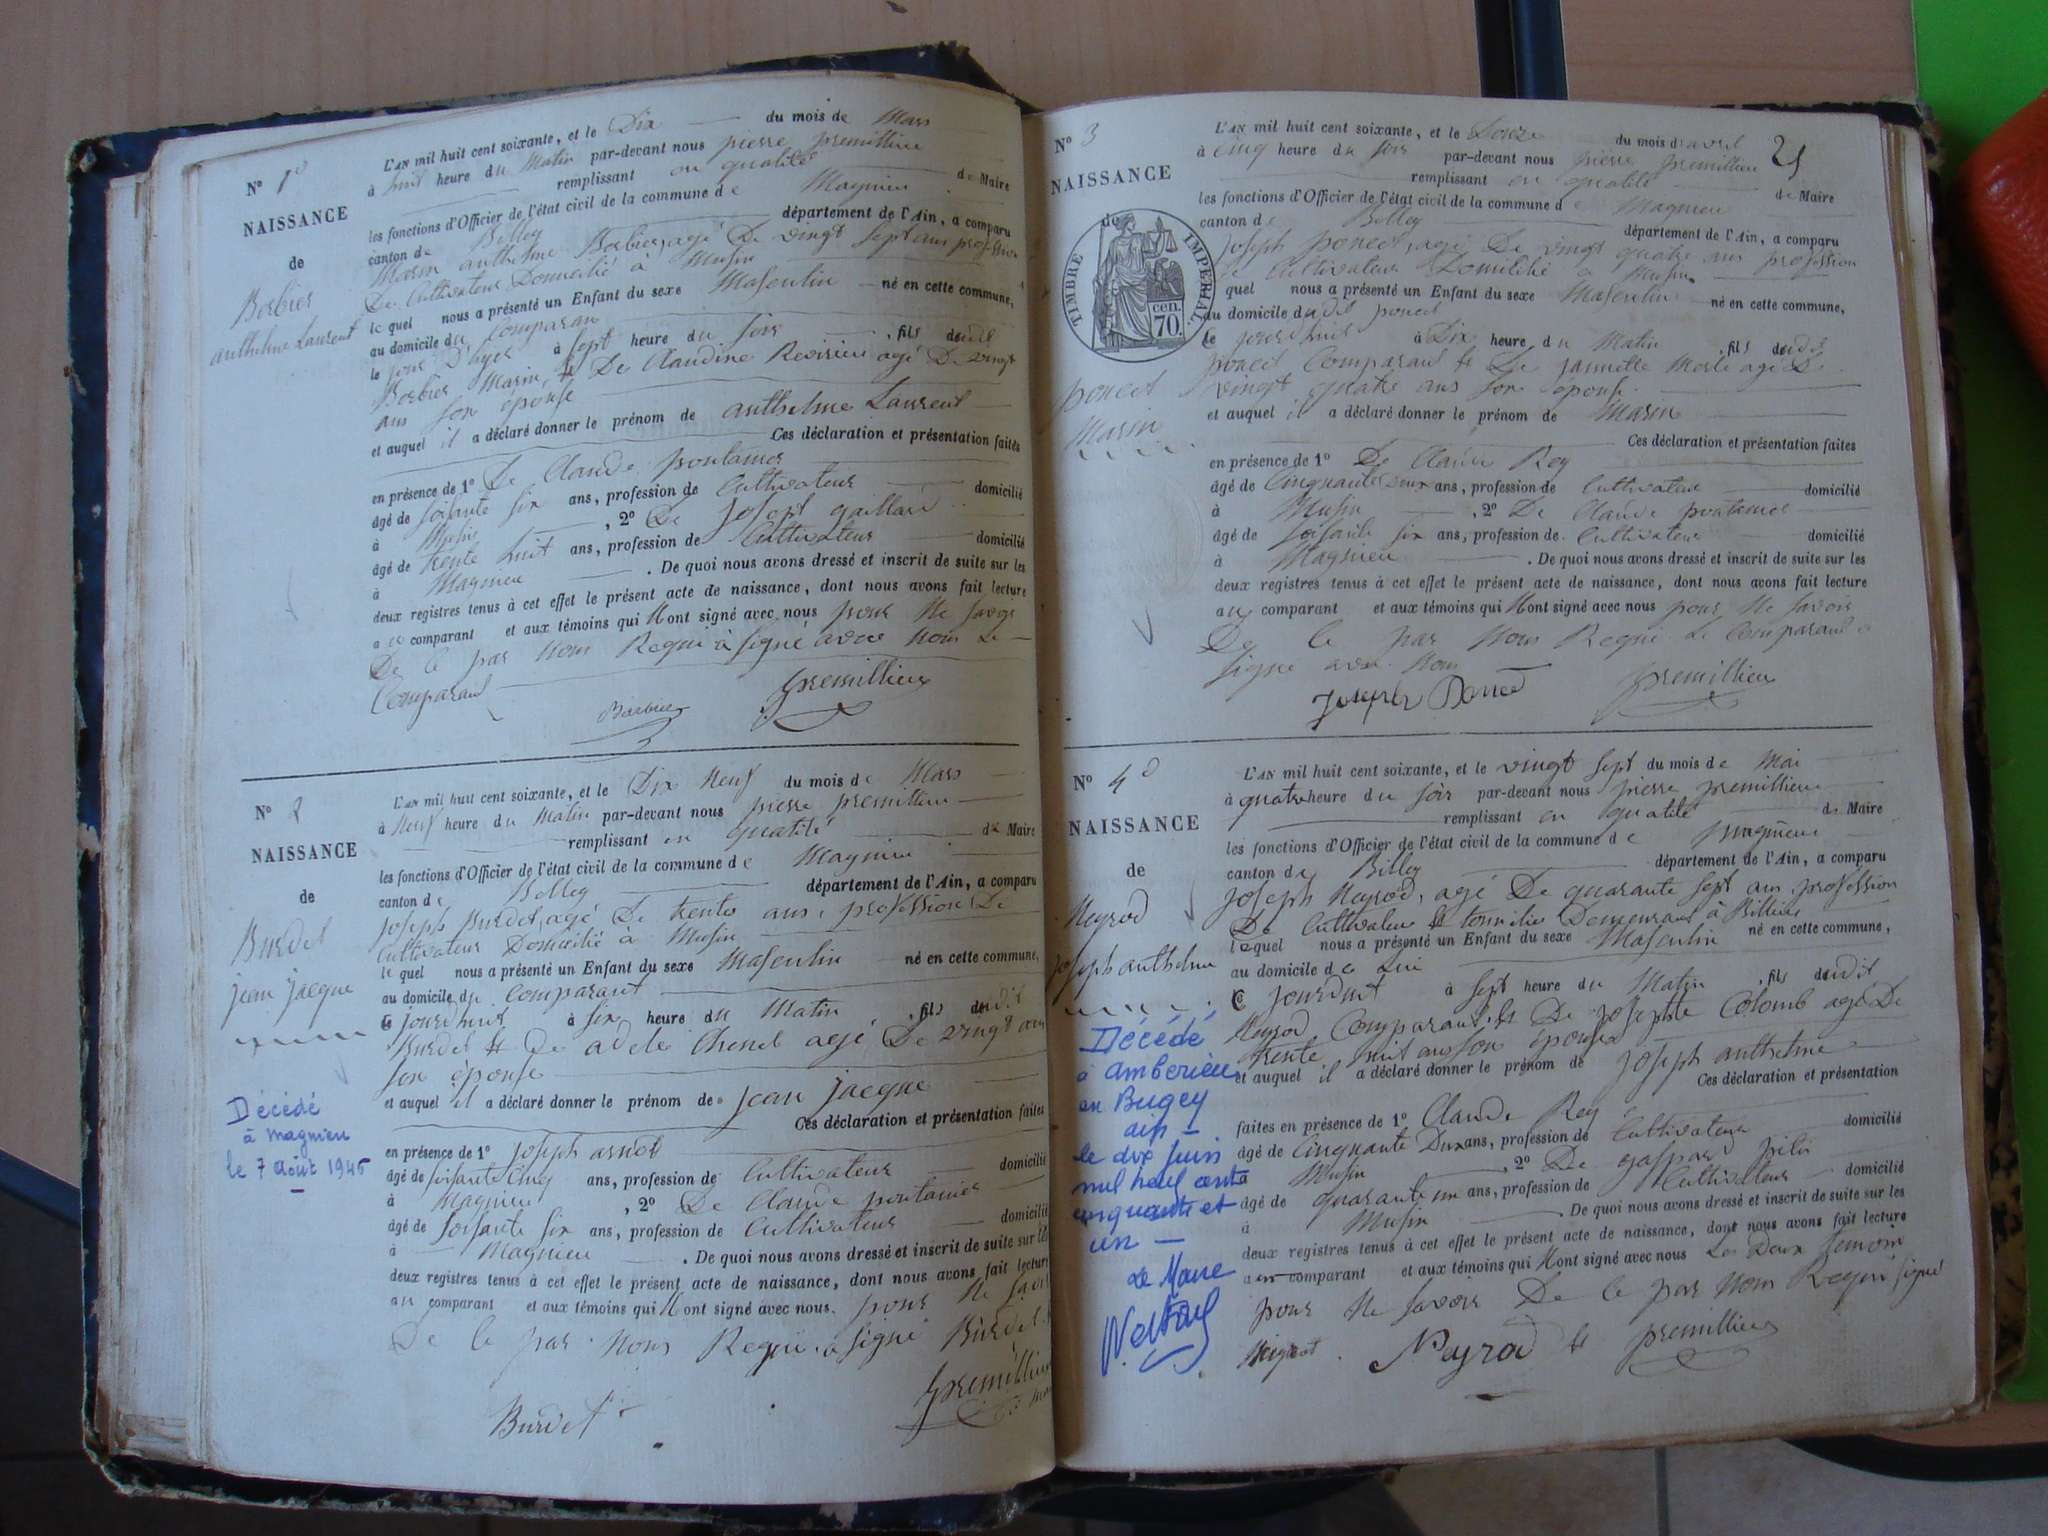 N° 1
NAISSANCE
de
Barbier
anthelme Laurent
L'AN mil huit cent soixante, et le Dix du mois de Mars
à huit heure du Matin par-devant nous pierre premillieu
remplissant en qualité de Maire
les fonctions d'Officier de l'état civil de la commune de Magnieu
canton de Belley département de l'Ain, a comparu
Marin anthelme Barbier, agé De vingt sept ans profession
De Cultivateur Domicilié à Musin
lequel nous a présenté un Enfant du sexe Masculin né en cette commune,
au domicile du Comparan
le jour d'hyer à sept heure du soir, fils dudit
Barbier Marin, & De Claudine agé De vingt
ans son épouse
et auquel il a déclaré donner le prénom de anthelme Laurent
Ces déclaration et présentation faites
en présence de 1° De Claude pontanier
âgé de soisante six ans, profession de Cultivateur domicilié
à Musin, 2° De Joseph gaillard
âgé de trente huit ans, profession de Cultivateur domicilié
à Magnieu. De quoi nous avons dressé et inscrit de suite sur les
deux registres tenus à cet effet le présent acte de naissance, dont nous avons fait lecture
au comparant et aux témoins qui N'ont signé avec nous pour Ne savoir
De ce par Nous Requi à signé avec Nous Le
Comparant
Barbier premillieu
N° 2
NAISSANCE
de
Burdet
jean jacque
Décédé
à Magnieu
le 7 août 1946
L'AN mil huit cent soixante, et le Dix Neuf du mois de Mars
à Neuf heure du Matin par-devant nous pierre premillieu
remplissant en qualité de Maire
les fonctions d'Officier de l'état civil de la commune de Magnieu
canton de Belley département de l'Ain, a comparu
joseph Burdet, agé De trente ans, profession De
Cultivateur Domicilié à Musin
lequel nous a présenté un Enfant du sexe Masculin né en cette commune,
au domicile du comparant
Ce jourdhui à six heure du Matin, fils dudit
Burdet & De adele Chenet agé De vingt ans
son épouse
et auquel il a déclaré donner le prénom de jean jacque
Ces déclaration et présentation faites
en présence de 1° joseph
âgé de soisante Cinq ans, profession de Cultivateur domicilié
à Magnieu, 2° De Claude pontanier
âgé de soisante six ans, profession de Cultivateur domicilié
à Magnieu. De quoi nous avons dressé et inscrit de suite sur les
deux registres tenus à cet effet le présent acte de naissance, dont nous avons fait lecture
au comparant et aux témoins qui N'ont signé avec nous. pour Ne
De ce par Nous Requi. à signé Burdet
premillieu
Burdet
N° 3
NAISSANCE
de
TIMBRE IMPERIAL
cen.
70.
poncet
Marin
L'AN mil huit cent soixante, et le Douze du mois d'avril
25
à Cinq heure du soir par-devant nous pierre premillieu
remplissant en qualité de Maire
les fonctions d'Officier de l'état civil de la commune de Magnieu
canton de Belley département de l'Ain, a comparu
Joseph poncet, agé De vingt quatre ans profession
de Cultivateur Domicilié à Musin
quel nous a présenté un Enfant du sexe Masculin né en cette commune,
au domicile dudit poncet
Ce jourdhui à Dix heure du Matin, fils dudit
poncet Comparant & De jannette agé De
vingt quatre ans son épouse
et auquel il a déclaré donner le prénom de Marin
Ces déclaration et présentation faites
en présence de 1° De Claude Rey
âgé de Cinquante Deux ans, profession de Cultivateur domicilié
à Musin, 2° De Claude pontanier
âgé de soisante six ans, profession de Cultivateur domicilié
à Magnieu. De quoi nous avons dressé et inscrit de suite sur les
deux registres tenus à cet effet le présent acte de naissance, dont nous avons fait lecture
au comparant et aux témoins qui N'ont signé avec nous pour Ne savoir
De ce par Nous Requi. Le Comparant à
signé avec Nous
Joseph Poncet premillieu
N° 4
NAISSANCE
de
Neyrod
joseph anthelme
Décédé
à Amberieu
en Bugey
ain
le dix juin
mil neuf cent
cinquante et
un
Le Maire
L'AN mil huit cent soixante, et le vingt sept du mois de Mai
à quatre heure du soir par-devant nous pierre premillieu
remplissant en qualité de Maire
les fonctions d'Officier de l'état civil de la commune de Magnieu
canton de Billey département de l'Ain, a comparu
joseph Neyrod, agé De quarante sept ans profession
De Cultivateur & tonnelier Demeurant à Billieu
lequel nous a présenté un Enfant du sexe Masculin né en cette commune,
au domicile de Lui
Ce jourdhui à sept heure du Matin, fils dudit
Neyrod Comparant & De josephte Colomb agé De
trente huit ans son épouse
et auquel il a déclaré donner le prénom de joseph anthelme
Ces déclaration et présentation
faites en présence de 1° Claude Rey
âgé de Cinquante Deux ans, profession de Cultivateur domicilié
à Musin, 2° De gaspard
âgé de quarante un ans, profession de Cultivateur domicilié
à Musin. De quoi nous avons dressé et inscrit de suite sur les
deux registres tenus à cet effet le présent acte de naissance, dont nous avons fait lecture
au comparant et aux témoins qui N'ont signé avec nous Les Deux temoin
pour Ne savoir De ce par Nous Requi signé
Neyrod & premillieu